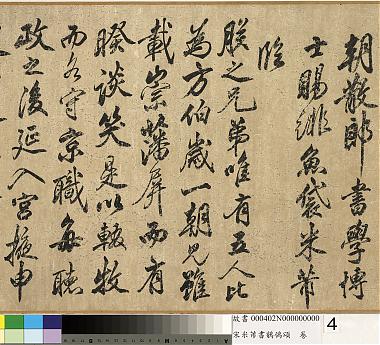 朝散郎書學博
士賜緋魚袋米芾
臨
朕之兄弟唯有五人比
為方伯歲一朝見雖
載崇藩屏而有
暌談笑是以輟牧
而各守京職每聽
政之後延入宮掖申
故書000402N000000000
宋米芾書鶺鴒頌 卷
4